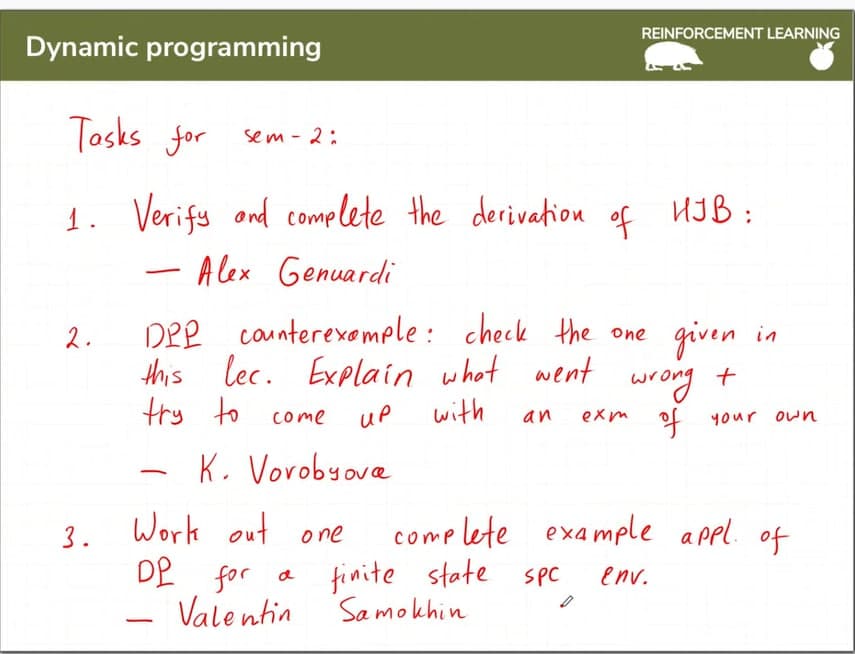 Dynamic programming
REINFORCEMENT LEARNING
Tasks for sem-2:
1. Verify and complete the derivation of HJB:
— Alex Genuardi
2. DPP counterexample: check the one given in
this lec. Explain what went wrong +
try to come up with an exm of your own
— K. Vorobyova
3. Work out one complete example appl. of
DP for a finite state spc env.
— Valentin Samokhin